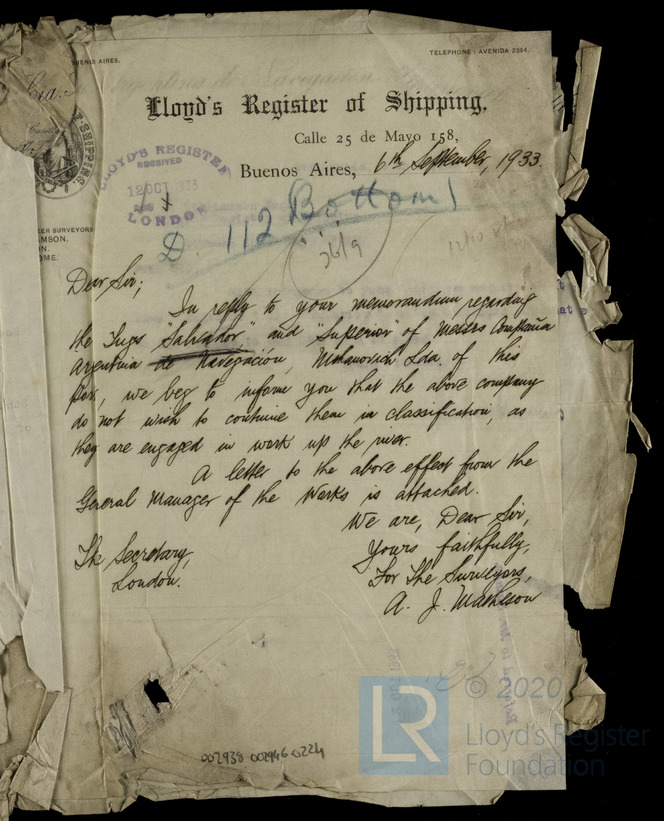 BUENOS AIRES.
TELEPHONE: AVENIDA 2364.
Lloyd's Register of Shipping,
Calle 25 de Mayo 158,
Buenos Aires, 6th September, 1933.
LLOYD'S REGISTER
RECEIVED
12 OCT 1933
LONDON
D. 112 Bottom
26/9
SURVEYORS
Dear Sir;
In reply to your memorandum regarding
the Tugs "Salvador," and "Superior" of Messrs Compañia
Argentina de Navegación, Mihanovich Lda. of this
Port, we beg to inform you that the above company
do not wish to continue them in classification, as
they are engaged in work up the river.
A letter to the above effect from the
General Manager of the Works is attached.
We are, Dear Sir,
Yours faithfully,
For The Surveyors,
A. J. Matheson
The Secretary,
London.
002938-002946-0224
LR
© 2020
Lloyd's Register
Foundation